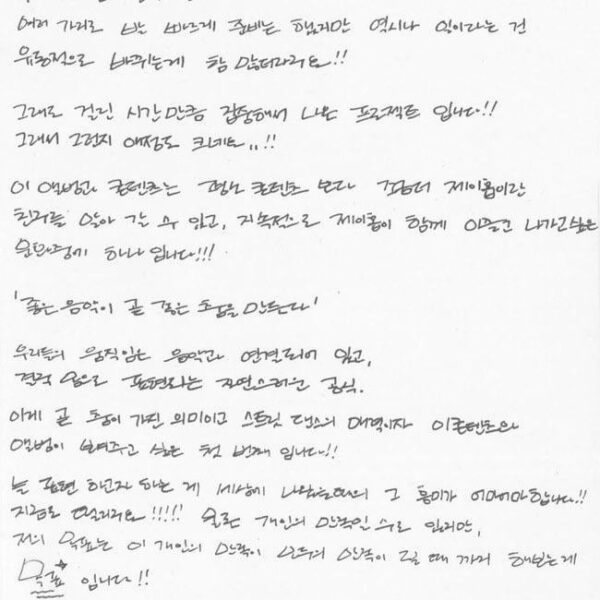 여러 가지로 발 빠르게 준비는 했지만 역시나 일이라는 건
유동적으로 바뀌는게 참 많더라구요!!
그래도 걸린 시간만큼 집중해서 나온 프로젝트 입니다!!
그래서 그런지 애정도 크네요..!!
이 앨범과 콘텐츠는 평소 콘텐츠 보다 좀 더 제이홉이란
친구를 알아 갈 수 있고, 지속적으로 제이홉이 함께 이끌고 나가고싶은
문화중에 하나 입니다!!!
'좋은 음악이 곧 좋은 춤을 만든다'
우리들의 움직임은 음악과 연결되어 있고,
결국 몸으로 표현하는 자연스러운 공식.
이게 곧 춤이 가진 의미이고 스트릿 댄스의 매력이자 이콘텐츠와
앨범이 보여주고 싶은 첫 번째 입니다!!
늘 표현 하고자 하는 게 세상에 나왔을때의 그 흥미가 어마어마합니다!!
지금도 떨리구요!!!!! 물론 개인의 만족일 수도 있지만,
저의 목표는 이 개인의 만족이 모두의 만족이 될 때 까지 해보는게
목표 입니다!!